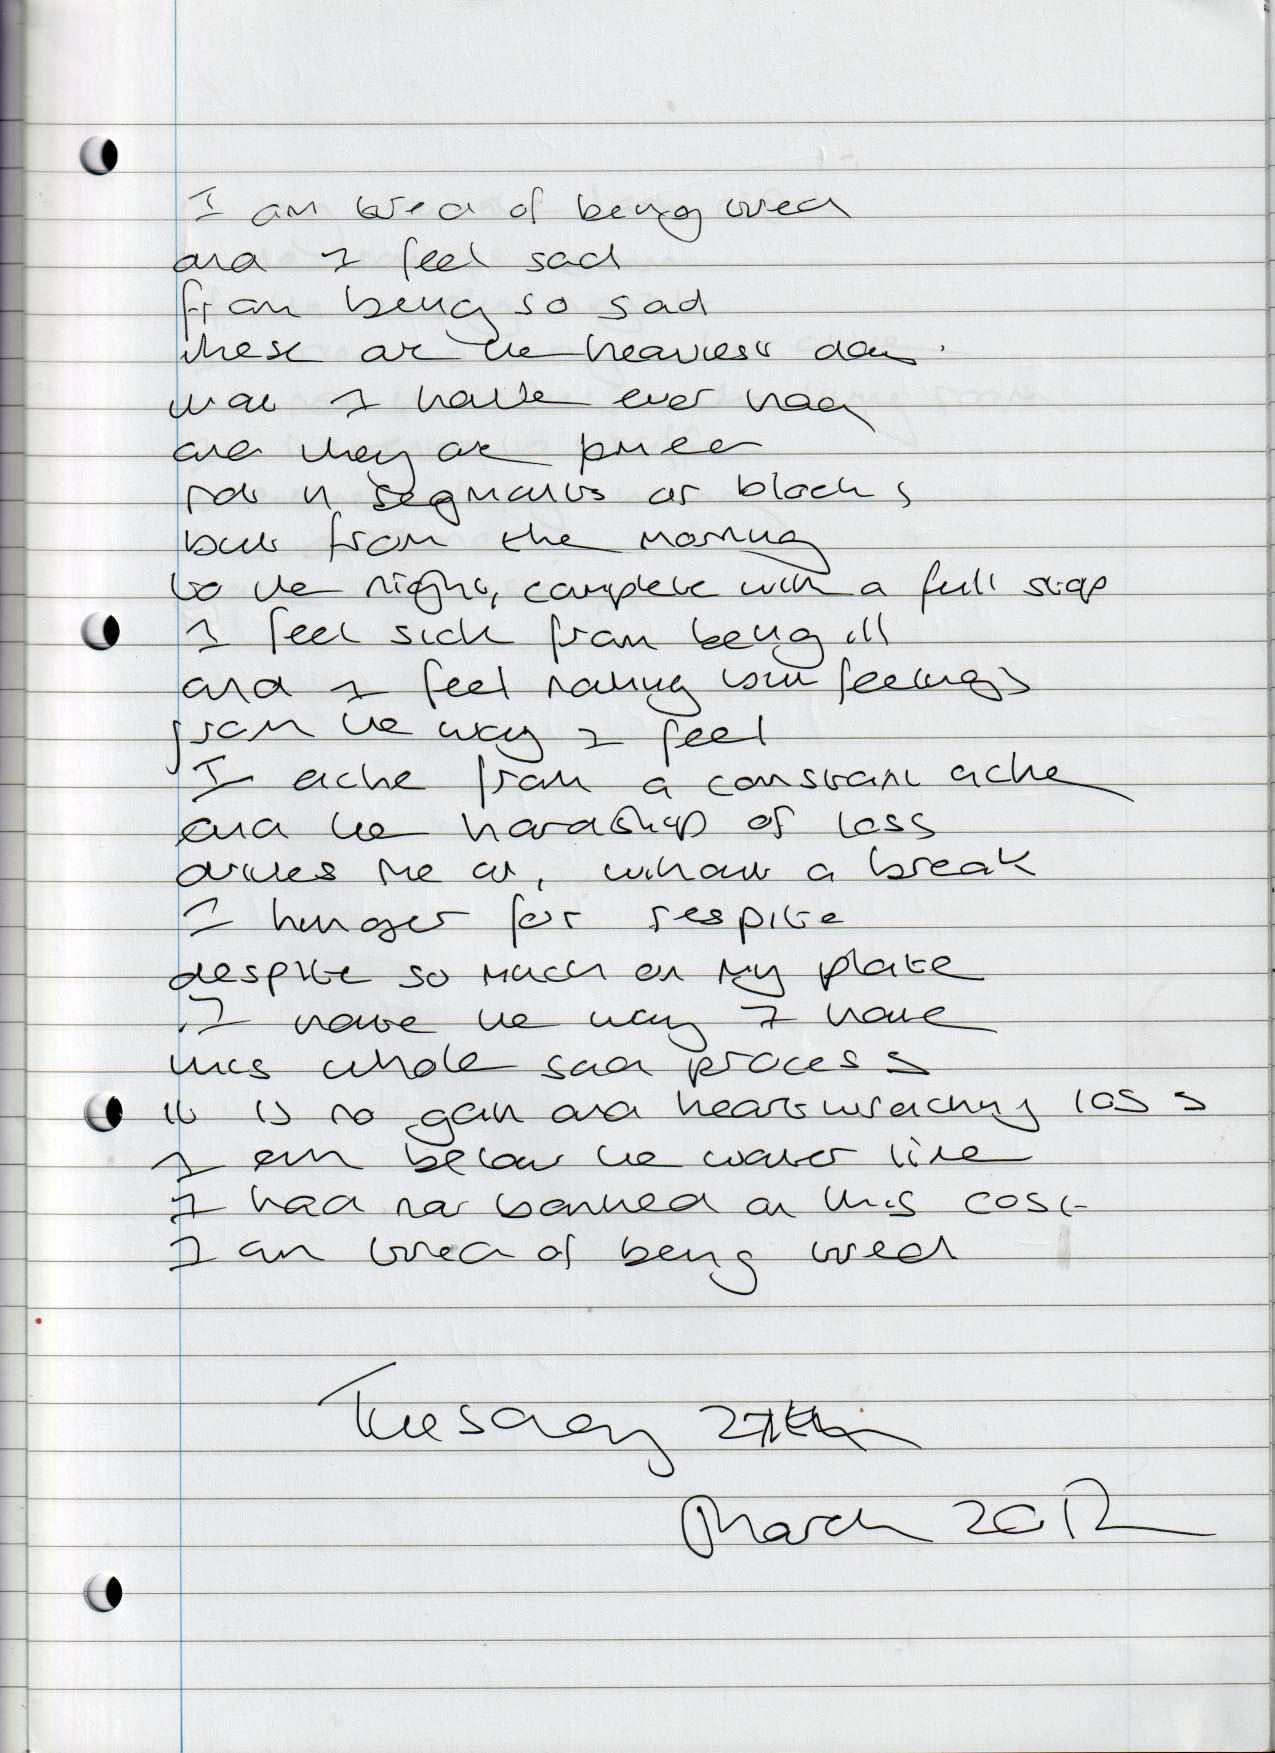 I am tired of being tired
and I feel sad
from being so sad
these are the heaviest days
that I have ever had
and they are piled
not in segments or blocks
but from the morning
to the night, complete with a full stop
I feel sick from being ill
and I feel nothing but feelings
from the way I feel
I ache from a constant ache
and the hardship of loss
drives me on, without a break
I hunger for respite
despite so much on my plate
I have the way I have
this whole sad process
it is no gain and heart wrenching loss
I am below the water line
I had not banked on this cost
I am tired of being tired
Tuesday 27th
March 2012